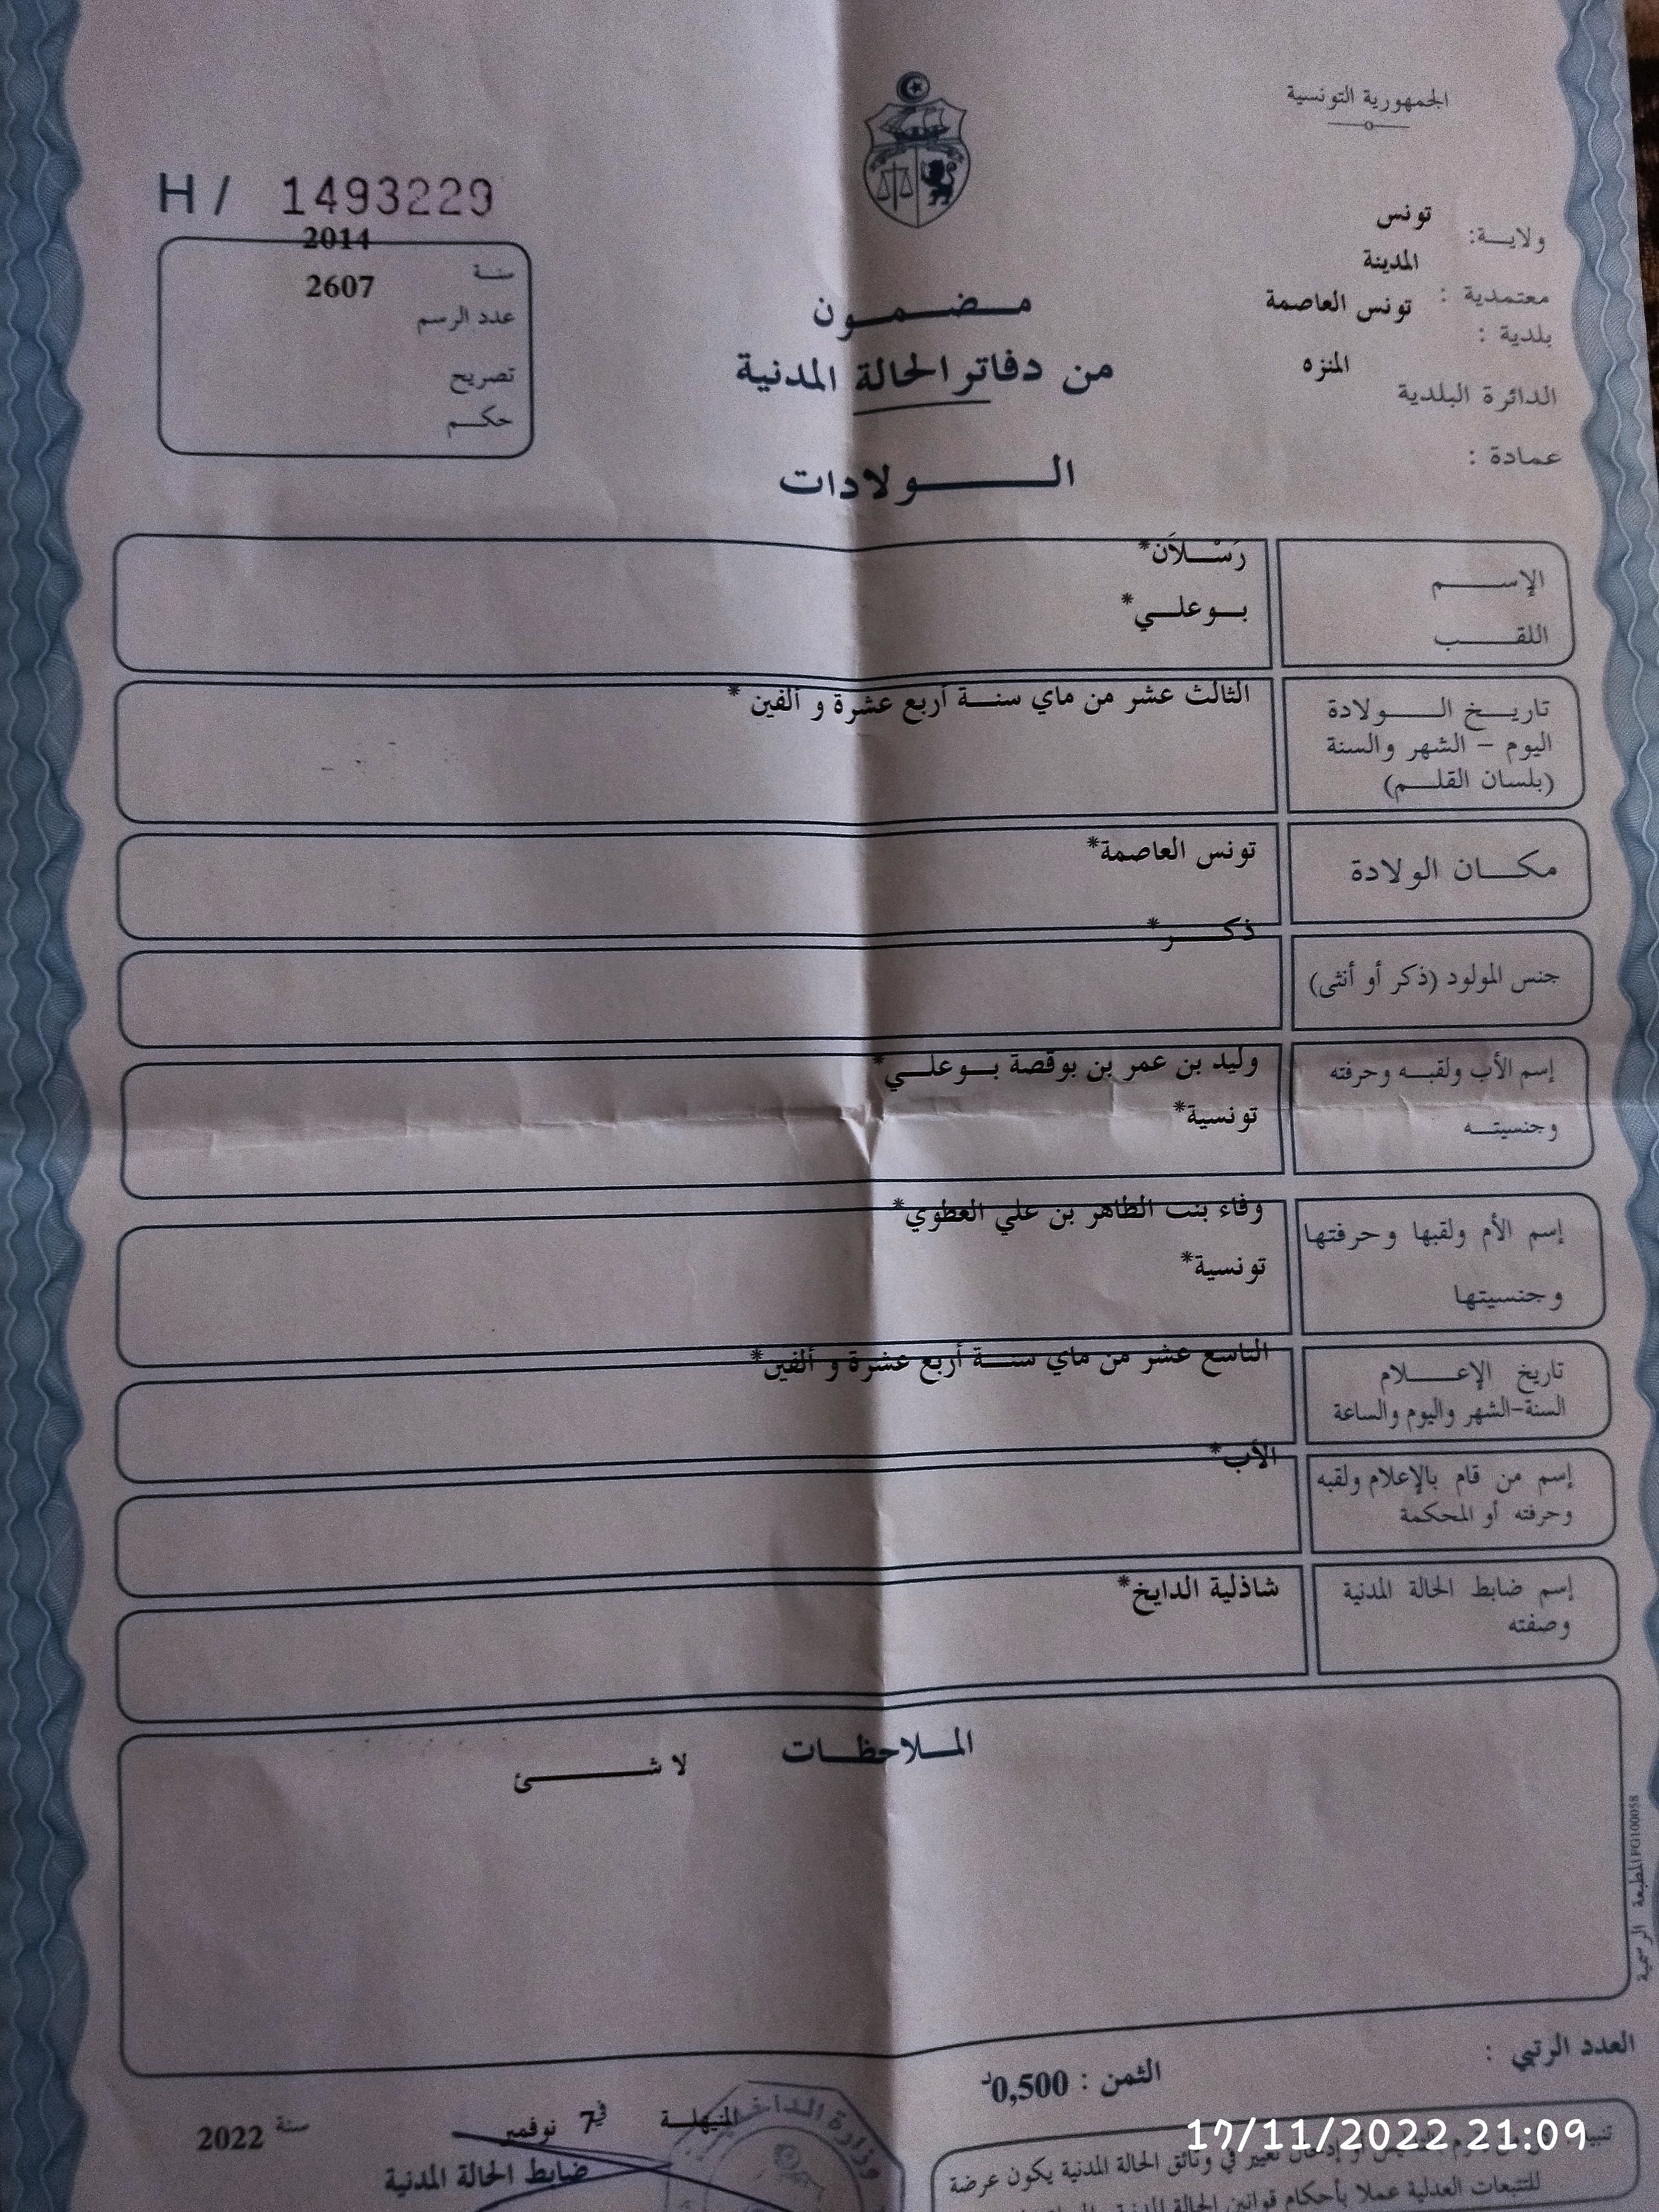 الجمهورية التونسية
H / 1493229
ولايـــة: تونس
المدينة
معتمدية :
بلدية : تونس العاصمة
الدائرة البلدية المنزه
عمادة :
2014
سنـة
2607
عدد الرسم
تصريح
حكـــم
مـــضـــمـــون
من دفاتر الحالة المدنية
الـــــولادات
الإســــم رَسْــلاَن*
اللقــــب بــوعلــي*
تاريــخ الـــــولادة الثالث عشر من ماي سنــة أربع عشرة و ألفين *
اليوم – الشهر والسنة
(بلسان القلـــم)
مكـــان الولادة تونس العاصمة*
جنس المولود (ذكر أو أنثى) ذكـــر*
إسم الأب ولقبــه وحرفته وليد بن عمر بن بوقصة بــوعلــي*
وجنسيتــه تونسية*
إسم الأم ولقبها وحرفتها وفاء بنت الطاهر بن علي العطوي*
وجنسيتها تونسية*
تاريخ الإعـــــلام التاسع عشر من ماي سنــة أربع عشرة و ألفين*
السنة-الشهر واليوم والساعة
إسم من قام بالإعلام ولقبه الأب*
وحرفته أو المحكمة
إسم ضابط الحالة المدنية شاذلية الدايخ*
وصفته
المــلاحظــات
لا شـــــئ
المطبعة الرسمية PG100058
العدد الرتبي :
الثمن : 0,500د
المنيهلـــة في 7 نوفمبر سنة 2022
ضابط الحالة المدنية
وزارة الداخلية
تغيير في وثائق الحالة المدنية يكون عرضة
للتتبعات العدلية عملا بأحكام قوانين الحالة المدنية
17/11/2022 21:09